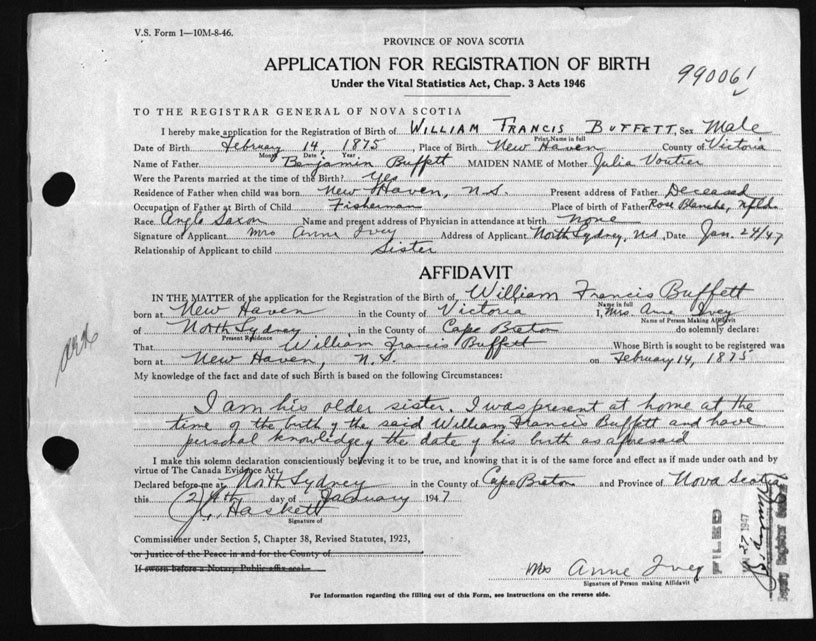 V.S. Form 1—10M-8-46.
PROVINCE OF NOVA SCOTIA
APPLICATION FOR REGISTRATION OF BIRTH
Under the Vital Statistics Act, Chap. 3 Acts 1946
990061
TO THE REGISTRAR GENERAL OF NOVA SCOTIA
I hereby make application for the Registration of Birth of WILLIAM FRANCIS BUFFETT, Sex Male
Print Name in full
Date of Birth February 14, 1875, Place of Birth New Haven County of Victoria
Month Date Year
Name of Father Benjamin Buffett MAIDEN NAME of Mother Julia Voutier
Were the Parents married at the time of the Birth? Yes
Residence of Father when child was born New Haven, N.S. Present address of Father Deceased
Occupation of Father at Birth of Child Fisherman Place of birth of Father Rose Blanche, Nfld.
Race Anglo Saxon Name and present address of Physician in attendance at birth none
Signature of Applicant Mrs Anne Ivey Address of Applicant North Sydney, N.S. Date Jan. 24/47
Relationship of Applicant to child Sister
AFFIDAVIT
IN THE MATTER of the application for the Registration of the Birth of William Francis Buffett
Name in full
born at New Haven in the County of Victoria I, Mrs. Anne Ivey
Name of Person Making Affidavit
of North Sydney, in the County of Cape Breton do solemnly declare:
Present Residence
That William Francis Buffett Whose Birth is sought to be registered was
born at New Haven, N.S. on February 14, 1875
My knowledge of the fact and date of such Birth is based on the following Circumstances:
I am his older sister. I was present at home at the
time of the birth of the said William Francis Buffett and have
personal knowledge of the date of his birth as aforesaid
I make this solemn declaration conscientiously believing it to be true, and knowing that it is of the same force and effect as if made under oath and by
virtue of The Canada Evidence Act.
Declared before me at North Sydney in the County of Cape Breton and Province of Nova Scotia
this 24th day of January 1947
Haskett
Signature of
Commissioner under Section 5, Chapter 38, Revised Statutes, 1923,
or Justice of the Peace in and for the County of
If sworn before a Notary Public affix seal.
Mrs Anne Ivey
Signature of Person making Affidavit
For Information regarding the filling out of this Form, see instructions on the reverse side.